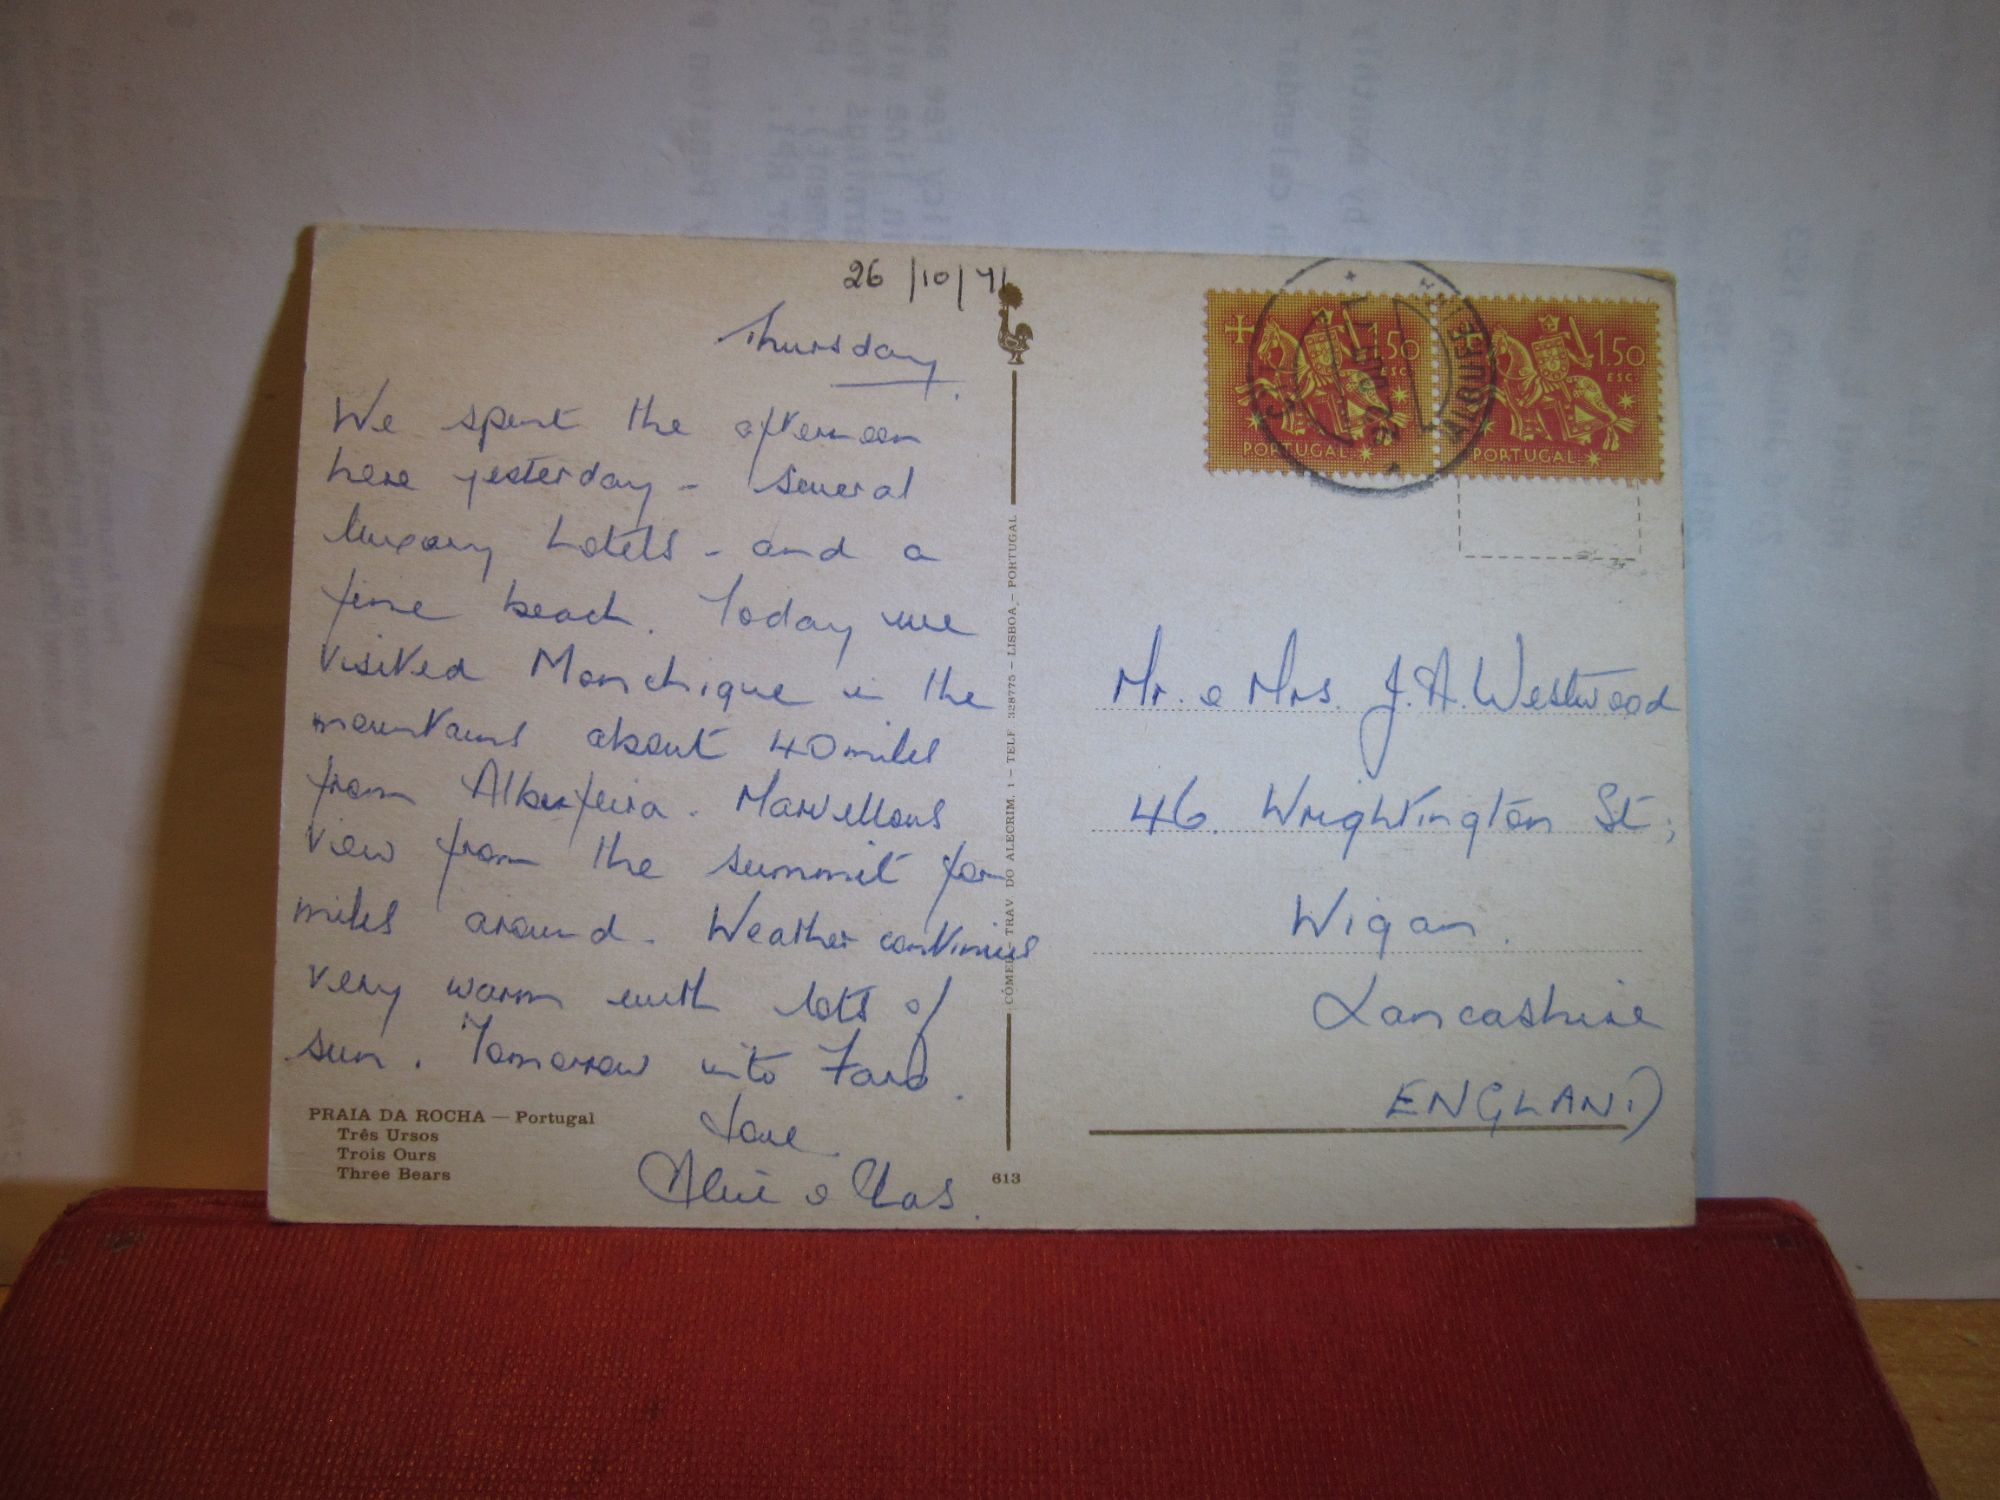 26/10/71
Thursday.
We spent the afternoon
here yesterday - several
luxury hotels - and a
fine beach. Today we
visited Monchique in the
mountains about 40 miles
from Albufeira. Marvellous
view from the summit for
miles around. Weather continues
very warm with lots of
sun. Tomorrow into Faro.
Love
& Chas.
PRAIA DA ROCHA — Portugal
Três Ursos
Trois Ours
Three Bears
TRAV DO ALECRIM, 1 — TELF 328775 — LISBOA — PORTUGAL
613
1$50 ESC.
PORTUGAL
1$50 ESC.
PORTUGAL
Mr. & Mrs. J. A. Westwood
46. Wrightington St;
Wigan.
Lancashire
ENGLAND